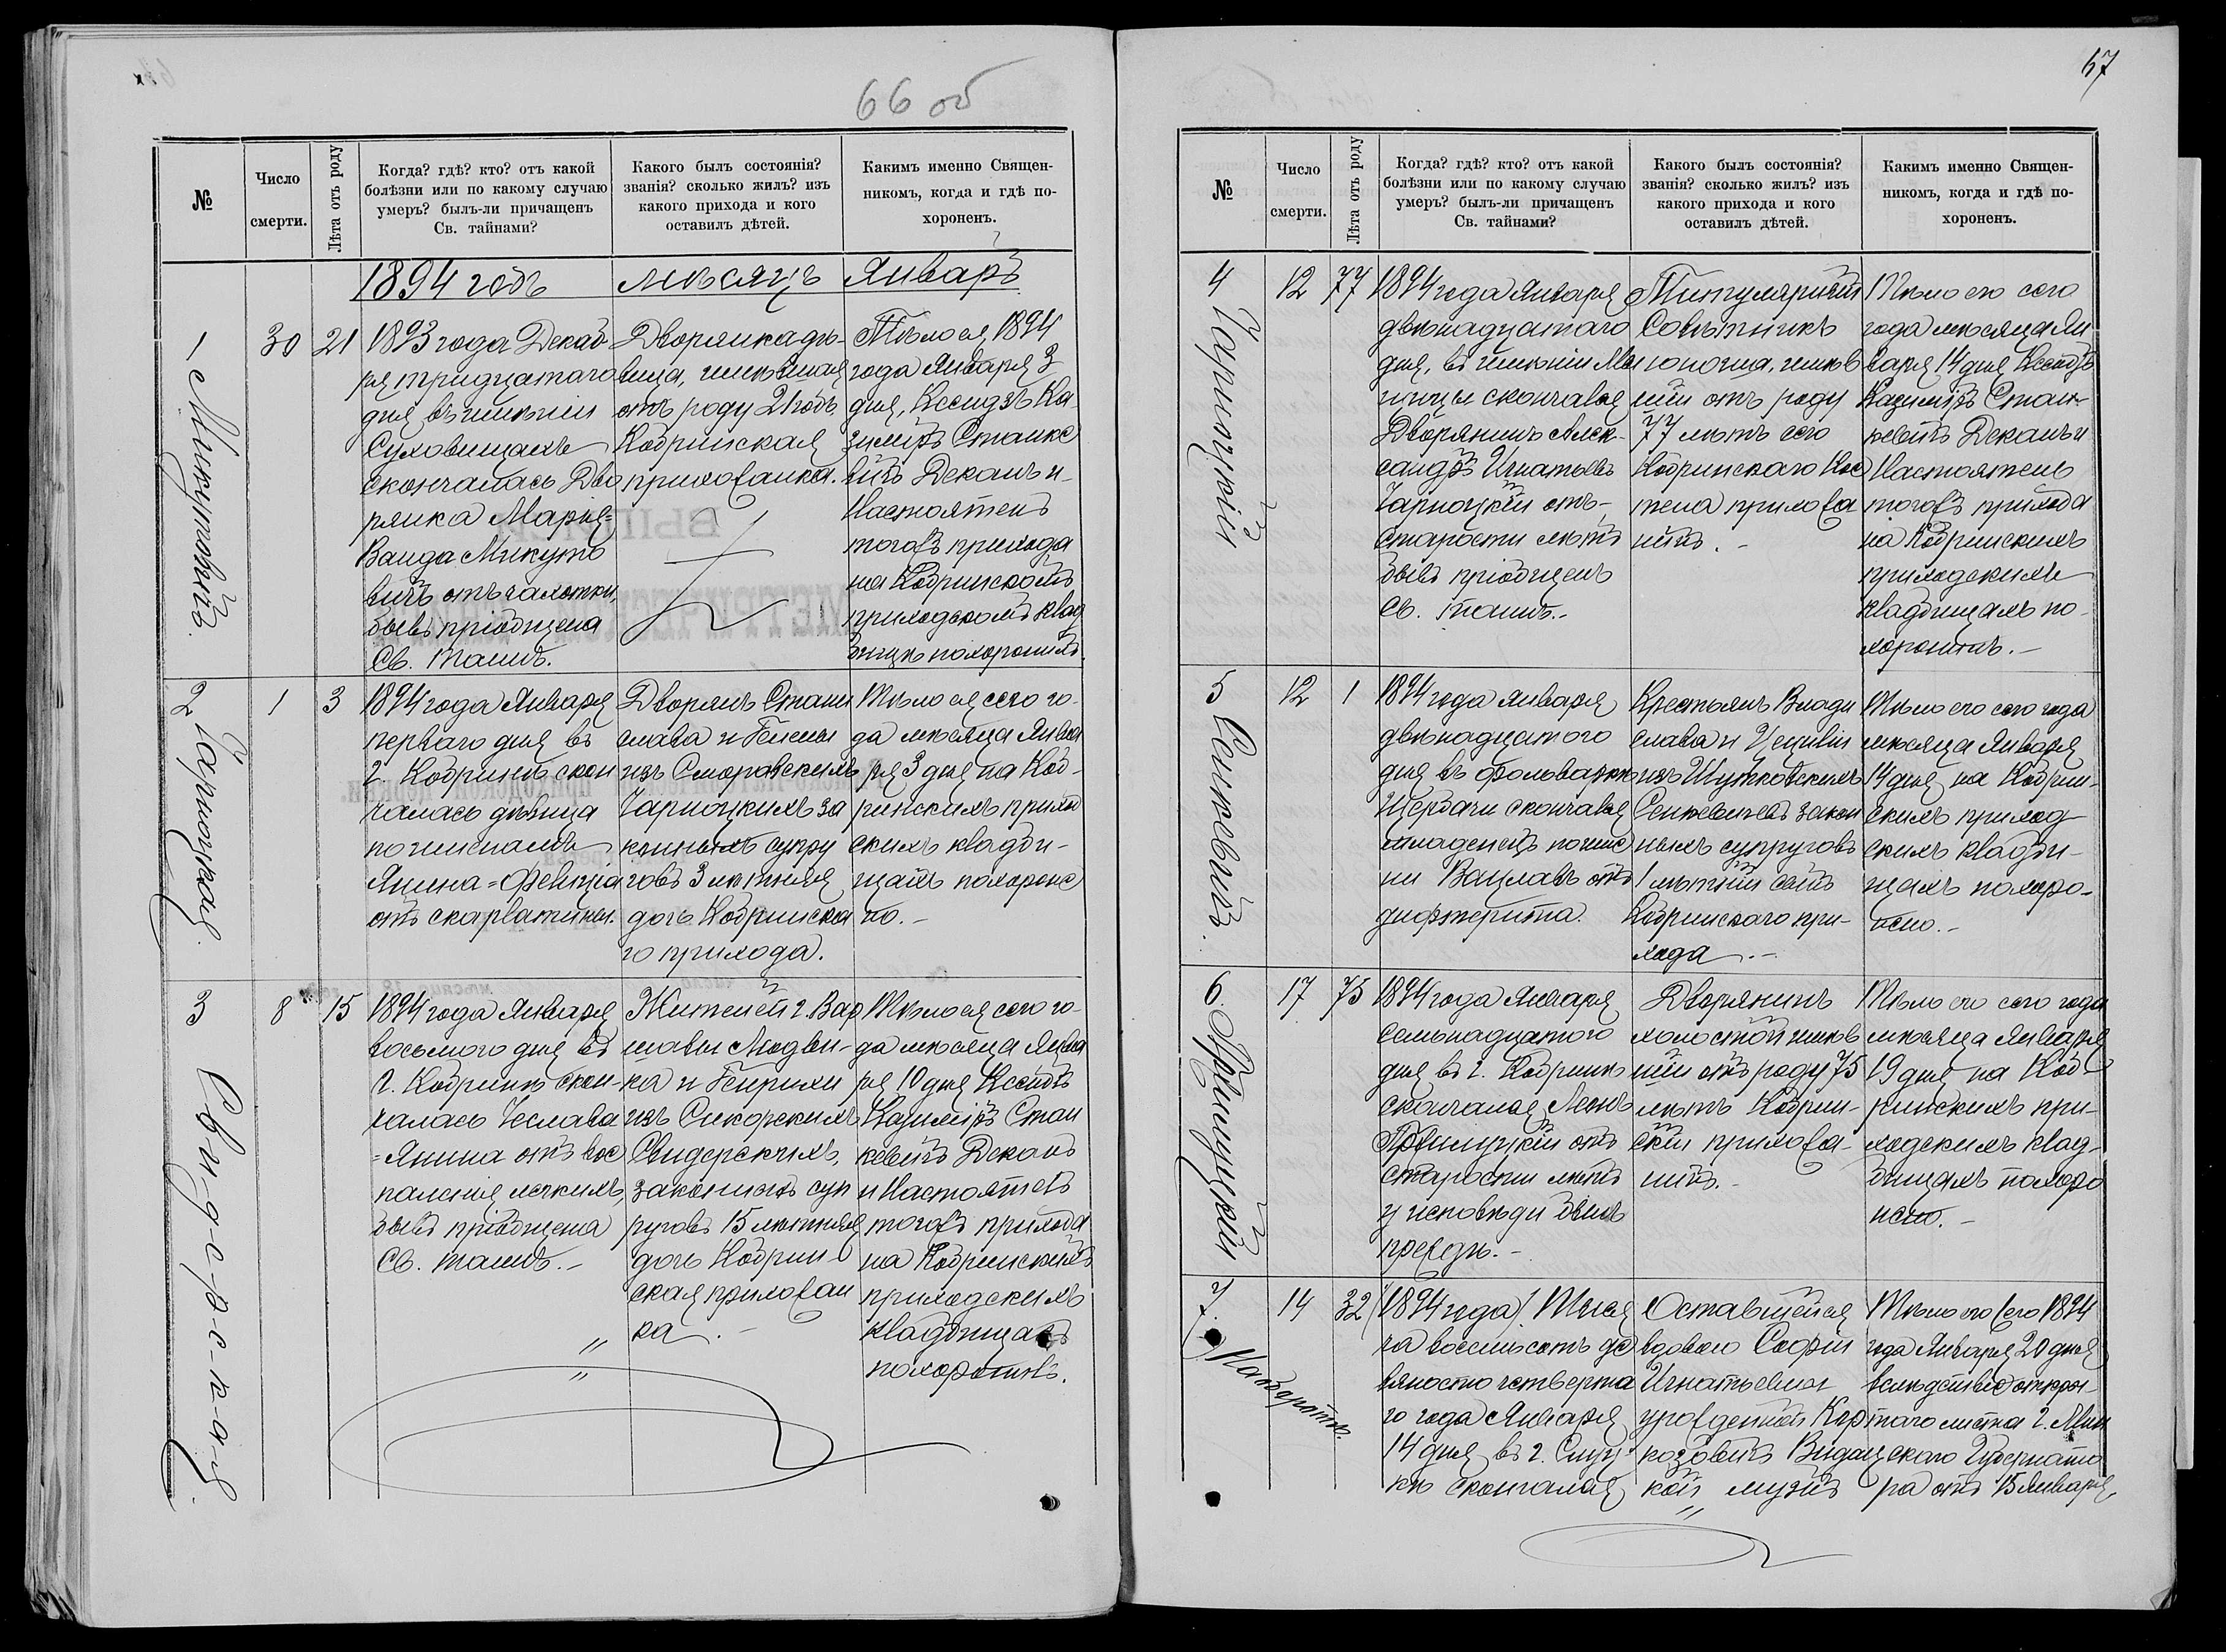 66 об
№
Число
смерти.
Лѣта отъ роду
Когда? гдѣ? кто? отъ какой
болѣзни или по какому случаю
умеръ? былъ-ли причащенъ
Св. тайнами?
Какого былъ состоянія?
званія? сколько жилъ? изъ
какого прихода и кого
оставилъ дѣтей.
Какимъ именно Священ-
никомъ, когда и гдѣ по-
хороненъ.
1894 годъ мѣсяцъ Январь
1
Микутовичъ.
30
21
1893 года Декаб-
ря тридцатаго
дня въ имѣніи
Суховщинахъ
скончалась Дво
рянка Марія=
Ванда Микуто
вичъ отъ чахотки,
бывъ пріобщена
Св. Таинъ.
Дворянка дѣ-
вица, имѣвшая
отъ роду 21 годъ,
Кобринская
прихожанка.
Тѣло ея, 1894
года Января 3
дня, Ксендзъ Ка
зиміръ Станке
вичъ Деканъ и
Настоятель
тогожъ прихода
на Кобринскомъ
приходскомъ клад
бищѣ похоронилъ.
2
Чарноцкая.
1
3
1894 года Января
перваго дня въ
г. Кобринѣ скон
чалась дѣвица
по именамъ
Янина=Фелиція
отъ скарлатины.
Дворянъ Стани
слава и Гелены
изъ Сморавскихъ
Чарноцкихъ за
конныхъ супру
говъ 3 лѣтняя
дочь Кобринска
го прихода.
Тѣло ея сего го-
да мѣсяца Янва
ря 3 дня на Коб-
ринскихъ прихо
скихъ кладби-
щахъ похороне
но.-
3
Свидерская.
8
15
1894 года Января
восьмого дня въ
г. Кобринѣ скон-
чалась Чеслава
=Янина отъ вос
паленія легкихъ,
бывъ пріобщена
Св. таинъ.-
Жителей г. Вар
шавы Людви-
ка и Генрихи
изъ Сикорскихъ
Свидерскихъ,
законныхъ суп
руговъ 15 лѣтняя
дочь Кобрин-
ская прихожан
ка.-
Тѣло ея сего го-
да мѣсяца Янва
ря 10 дня Ксендзъ
Казиміръ Стан
кевичъ Деканъ
и Настоятель
тогожъ прихода
на Кобринскихъ
приходскихъ
кладбищахъ
похоронилъ.
67
№
Число
смерти.
Лѣта отъ роду
Когда? гдѣ? кто? отъ какой
болѣзни или по какому случаю
умеръ? былъ-ли причащенъ
Св. тайнами?
Какого былъ состоянія?
званія? сколько жилъ? изъ
какого прихода и кого
оставилъ дѣтей.
Какимъ именно Священ-
никомъ, когда и гдѣ по-
хороненъ.
4
Чарноцкій
12
77
1894 года Января
двѣнадцатаго
дня, въ имѣніи
скончался
Дворянинъ Алек-
сандръ Игнатьевъ
Чарноцкій отъ-
старости лѣтъ
бывъ пріобщенъ
Св. таинъ.-
Титулярный
Совѣтникъ
юноша, имѣв
шій отъ роду
77 лѣтъ сего
Кобринскаго Кос
тела прихожа
нинъ.-
Тѣло его сего
года мѣсяца Ян
варя 14 дня Ксендзъ
Казиміръ Стан-
кевичъ Деканъ и
Настоятель
тогожъ прихода
на Кобринскихъ
приходскихъ
кладбищахъ по-
хоронилъ.-
5
Сенкевичъ.
12
1
1894 года Января
двѣнадцатого
дня въ фольваркѣ
Щербачи скончался
младенецъ по име
ни Вацлавъ отъ
дифтерита.
Крестьянъ Влади
слава и Цециліи
изъ Шутковскихъ
Сенкевичевъ закон
ныхъ супруговъ
1 лѣтній сынъ
Кобринскаго при-
хода.-
Тѣло его сего года
мѣсяца Января
14 дня, на Кобрин-
скихъ приход
скихъ кладби-
щахъ похоро-
нено.-
6.
17
75
1894 года Января
семьнадцатого
дня въ г. Кобринѣ
скончался Левъ
отъ
старости лѣтъ
и исповѣди былъ
прежде.-
Дворянинъ
холостой имѣв
шій отъ роду 75
лѣтъ Кобрин-
скій прихожа-
нинъ.-
Тѣло его сего года
мѣсяца Января
19 дня на Коб-
ринскихъ при-
ходскихъ клад-
бищахъ похоро
нено.-
7.
14
32
(1894 года). Тыся
ча восемьсотъ де
вяносто четверта
го года Января
14 дня въ г. Слуц-
кѣ скончался
Оставшейся
вдовою Софіи
Игнатьевны
урожденной Кор
козовичъ
кой мужъ
Тѣло его сего 1894
года Января 20 дня
вслѣдствіе откры-
таго листа г. Мин
скаго Губернато
ра отъ 15 Января,